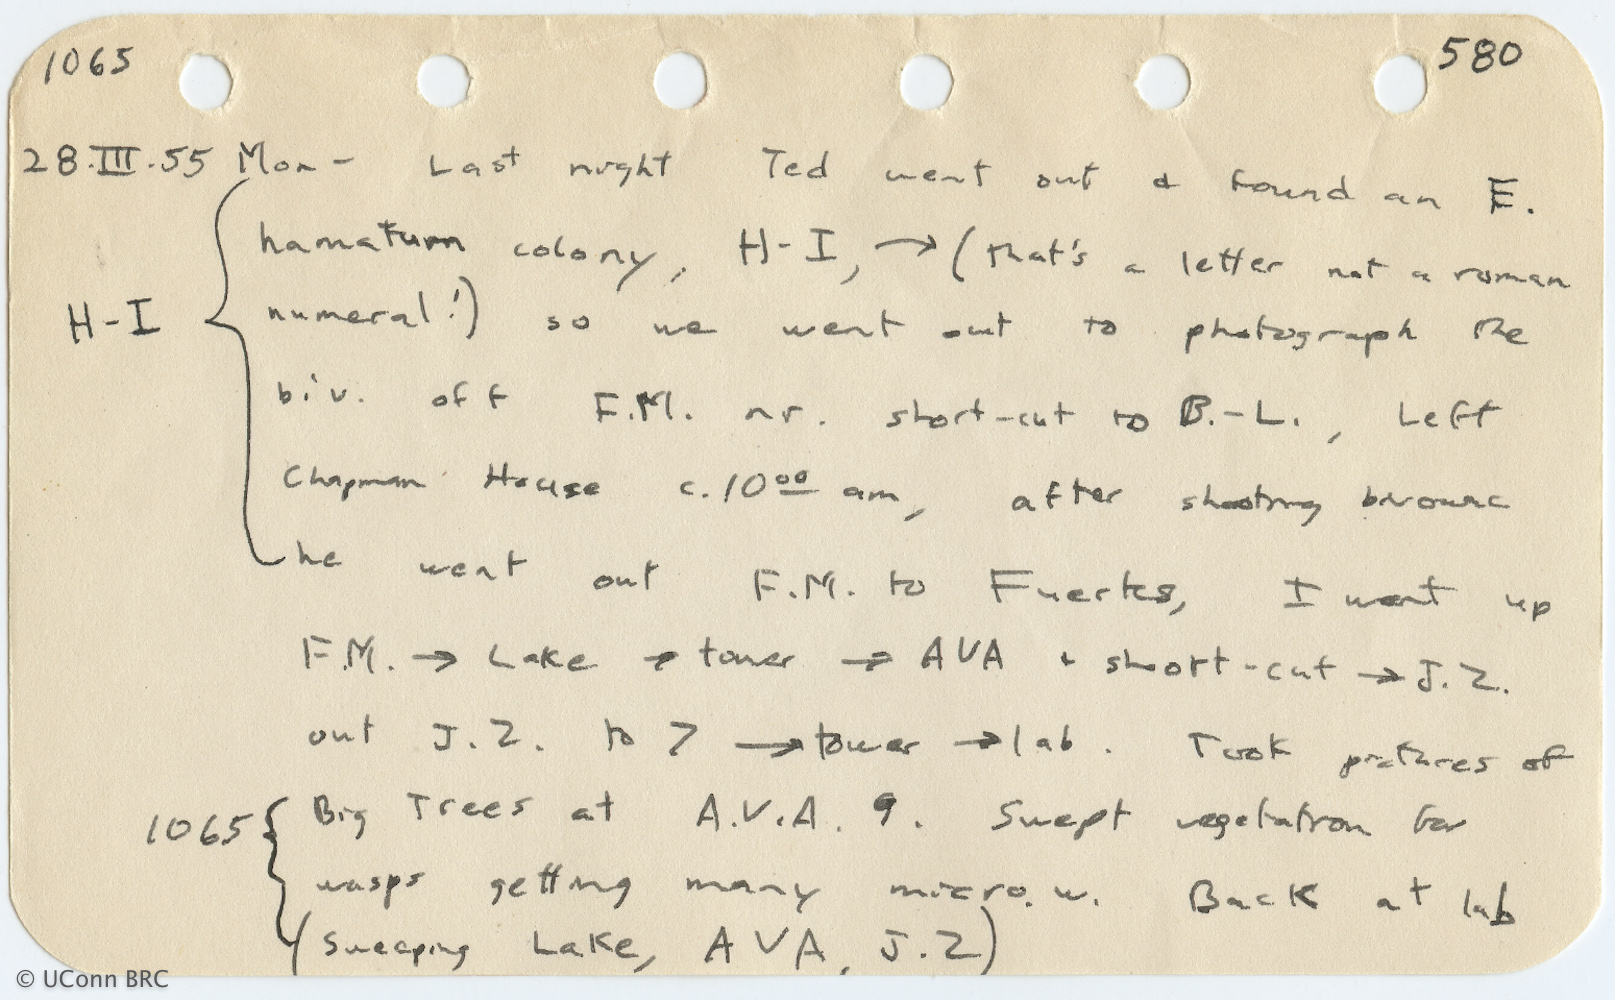 1065 580
28.III.55 Mon- Last night Ted went out & found an E.
hamatum colony, H-I, → (that's a letter not a roman
H-I numeral!) so we went out to photograph the
biv. off F.M. nr. short-cut to B.-L., Left
Chapman House c.10 00 am, after shooting bivouac
he went out F.M. to Fuertes, I went up
F.M. → Lake → tower → AVA & short-cut → J.Z.
out J.Z. to 7 → tower → lab. Took pictures of
1065 Big Trees at A.V.A. 9. Swept vegetation for
wasps getting many micro. w. Back at lab
(Sweeping Lake, AVA, J.Z)
© UConn BRC